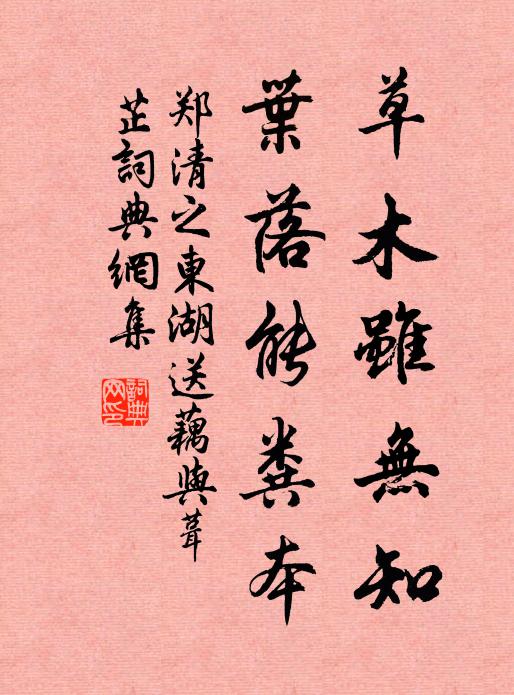 草木雖無知
葉落能糞本
郑清之東湖送藕與葺
芷詞典網集
詞典网印